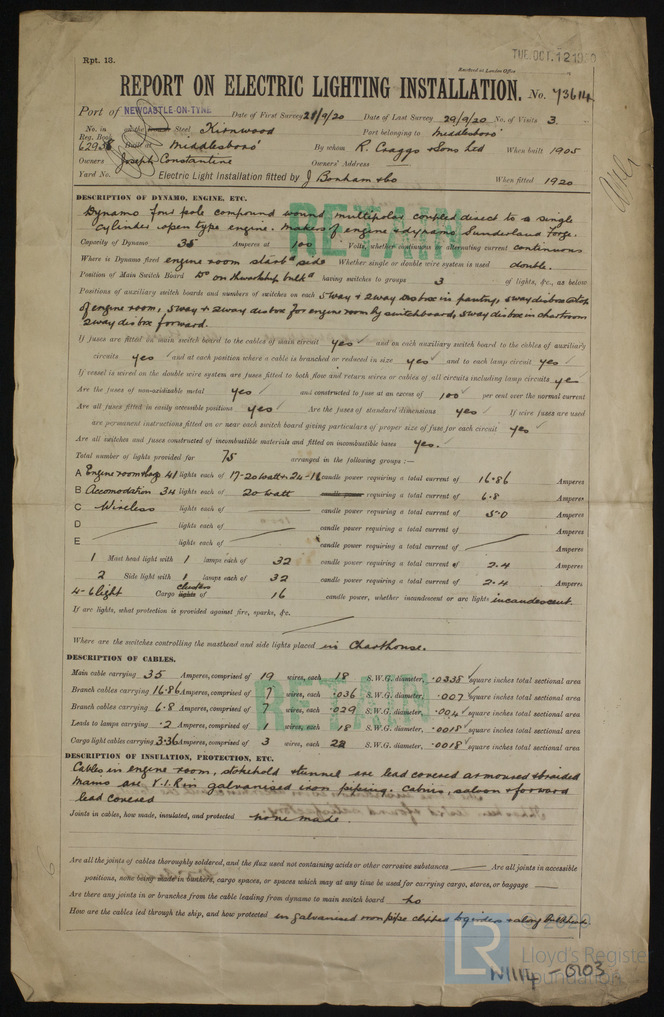 Rpt. 13.
TUE. OCT. 12 1920
Received at London Office
REPORT ON ELECTRIC LIGHTING INSTALLATION. No. 73614
Port of NEWCASTLE-ON-TYNE Date of First Survey 21/9/20 Date of Last Survey 29/9/20 No. of Visits 3.
No. in Reg. Book 62936 on the Steel Kirnwood Port belonging to Middlesboro'
Built at Middlesboro' By whom R. Craggs & Sons Ltd When built 1905
Owners Joseph Constantine Owners' Address
Yard No. Electric Light Installation fitted by J Bonham & Co When fitted 1920
DESCRIPTION OF DYNAMO, ENGINE, ETC.
Dynamo four pole compound wound multipolar coupled direct to a single
cylinder open type engine. Makers of engine & dynamo Sunderland Forge.
RETAIN
Capacity of Dynamo 35 Amperes at 100 Volts, whether continuous or alternating current continuous
Where is Dynamo fixed engine room starbd side Whether single or double wire system is used double.
Position of Main Switch Board Do on thwartship bulkd having switches to groups 3 of lights, &c., as below
Positions of auxiliary switch boards and numbers of switches on each 5 way & 2 way Dis box in pantry, 5 way dis box
of engine room, 5 way & 2 way dis box for engine room by switchboard, 5 way dis box in chartroom
2 way dis box forward.
If fuses are fitted on main switch board to the cables of main circuit yes and on each auxiliary switch board to the cables of auxiliary
circuits yes and at each position where a cable is branched or reduced in size yes and to each lamp circuit yes
If vessel is wired on the double wire system are fuses fitted to both flow and return wires or cables of all circuits including lamp circuits yes
Are the fuses of non-oxidizable metal yes and constructed to fuse at an excess of 100 per cent over the normal current
Are all fuses fitted in easily accessible positions yes Are the fuses of standard dimensions yes If wire fuses are used
are permanent instructions fitted on or near each switch board giving particulars of proper size of fuse for each circuit yes
Are all switches and fuses constructed of incombustible materials and fitted on incombustible bases yes.
Total number of lights provided for 75 arranged in the following groups :—
A Engine room 41 lights each of 17-20 watt & 24-16 candle power requiring a total current of 16.86 Amperes
B Accomodation 34 lights each of 20 watt candle power requiring a total current of 6.8 Amperes
C Wireless lights each of candle power requiring a total current of 5.0 Amperes
D lights each of candle power requiring a total current of Amperes
E lights each of candle power requiring a total current of Amperes
1 Mast head light with 1 lamps each of 32 candle power requiring a total current of 2.4 Amperes
2 Side light with 1 lamps each of 32 candle power requiring a total current of 2.4 Amperes
4-6 light Cargo lights clusters of 16 candle power, whether incandescent or arc lights incandescent.
If arc lights, what protection is provided against fire, sparks, &c.
Where are the switches controlling the masthead and side lights placed in Charthouse.
DESCRIPTION OF CABLES.
Main cable carrying 35 Amperes, comprised of 19 wires, each 18 S.W.G. diameter, .0338 square inches total sectional area
Branch cables carrying 16.86 Amperes, comprised of 7 wires, each .036 S.W.G. diameter, .007 square inches total sectional area
RETAIN
Branch cables carrying 6.8 Amperes, comprised of 7 wires, each .029 S.W.G. diameter, .004 square inches total sectional area
Leads to lamps carrying .2 Amperes, comprised of 1 wires, each 18 S.W.G. diameter, .0018 square inches total sectional area
Cargo light cables carrying 3.36 Amperes, comprised of 3 wires, each 22 S.W.G. diameter, .0018 square inches total sectional area
DESCRIPTION OF INSULATION, PROTECTION, ETC.
Cables in engine room, stokehold & tunnel are lead covered armoured & braided
Mains are V.I.R in galvanised iron piping. Cabins, saloon & forward
lead covered
Joints in cables, how made, insulated, and protected none made
Are all the joints of cables thoroughly soldered, and the flux used not containing acids or other corrosive substances Are all joints in accessible
positions, none being made in bunkers, cargo spaces, or spaces which may at any time be used for carrying cargo, stores, or baggage
Are there any joints in or branches from the cable leading from dynamo to main switch board no
How are the cables led through the ship, and how protected in galvanised iron pipe clipped to girders & along bulkheads
© 2020
LR Lloyd's Register
Foundation
W1114-0103